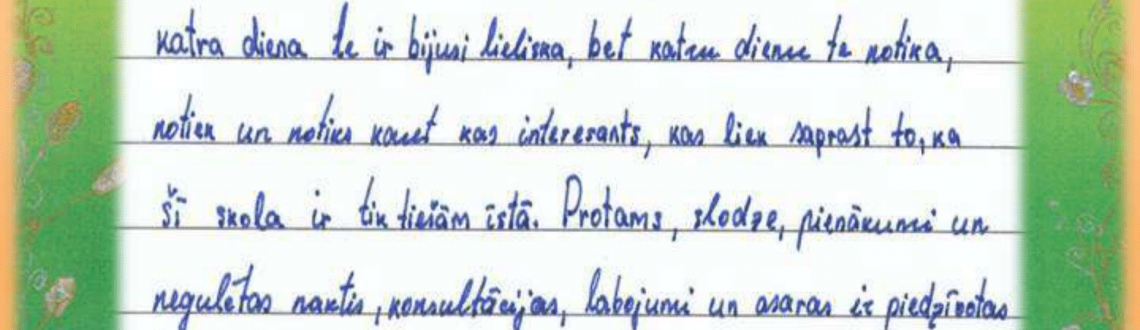 katra diena te ir bijusi lieliska, bet katru dienu te notika,
notiek un notiks kaut kas interesants, kas liek saprast to, ka
šī skola ir tik tiešām īstā. Protams, slodze, pienākumi un
negulētas naktis, konsultācijas, labojumi un asaras ir piedzīvotas